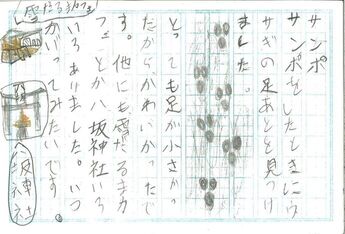 サンポ
サンポをしたときにウ
サギの足あとを見つけ
ました。
とっても足が小さかっ
だからかわいかったで
す。他にも雪だるまカ
フェとか八坂神社いろ
いろありました。いつ
かいってみたいです。
雪だるまカフェ
八坂神社